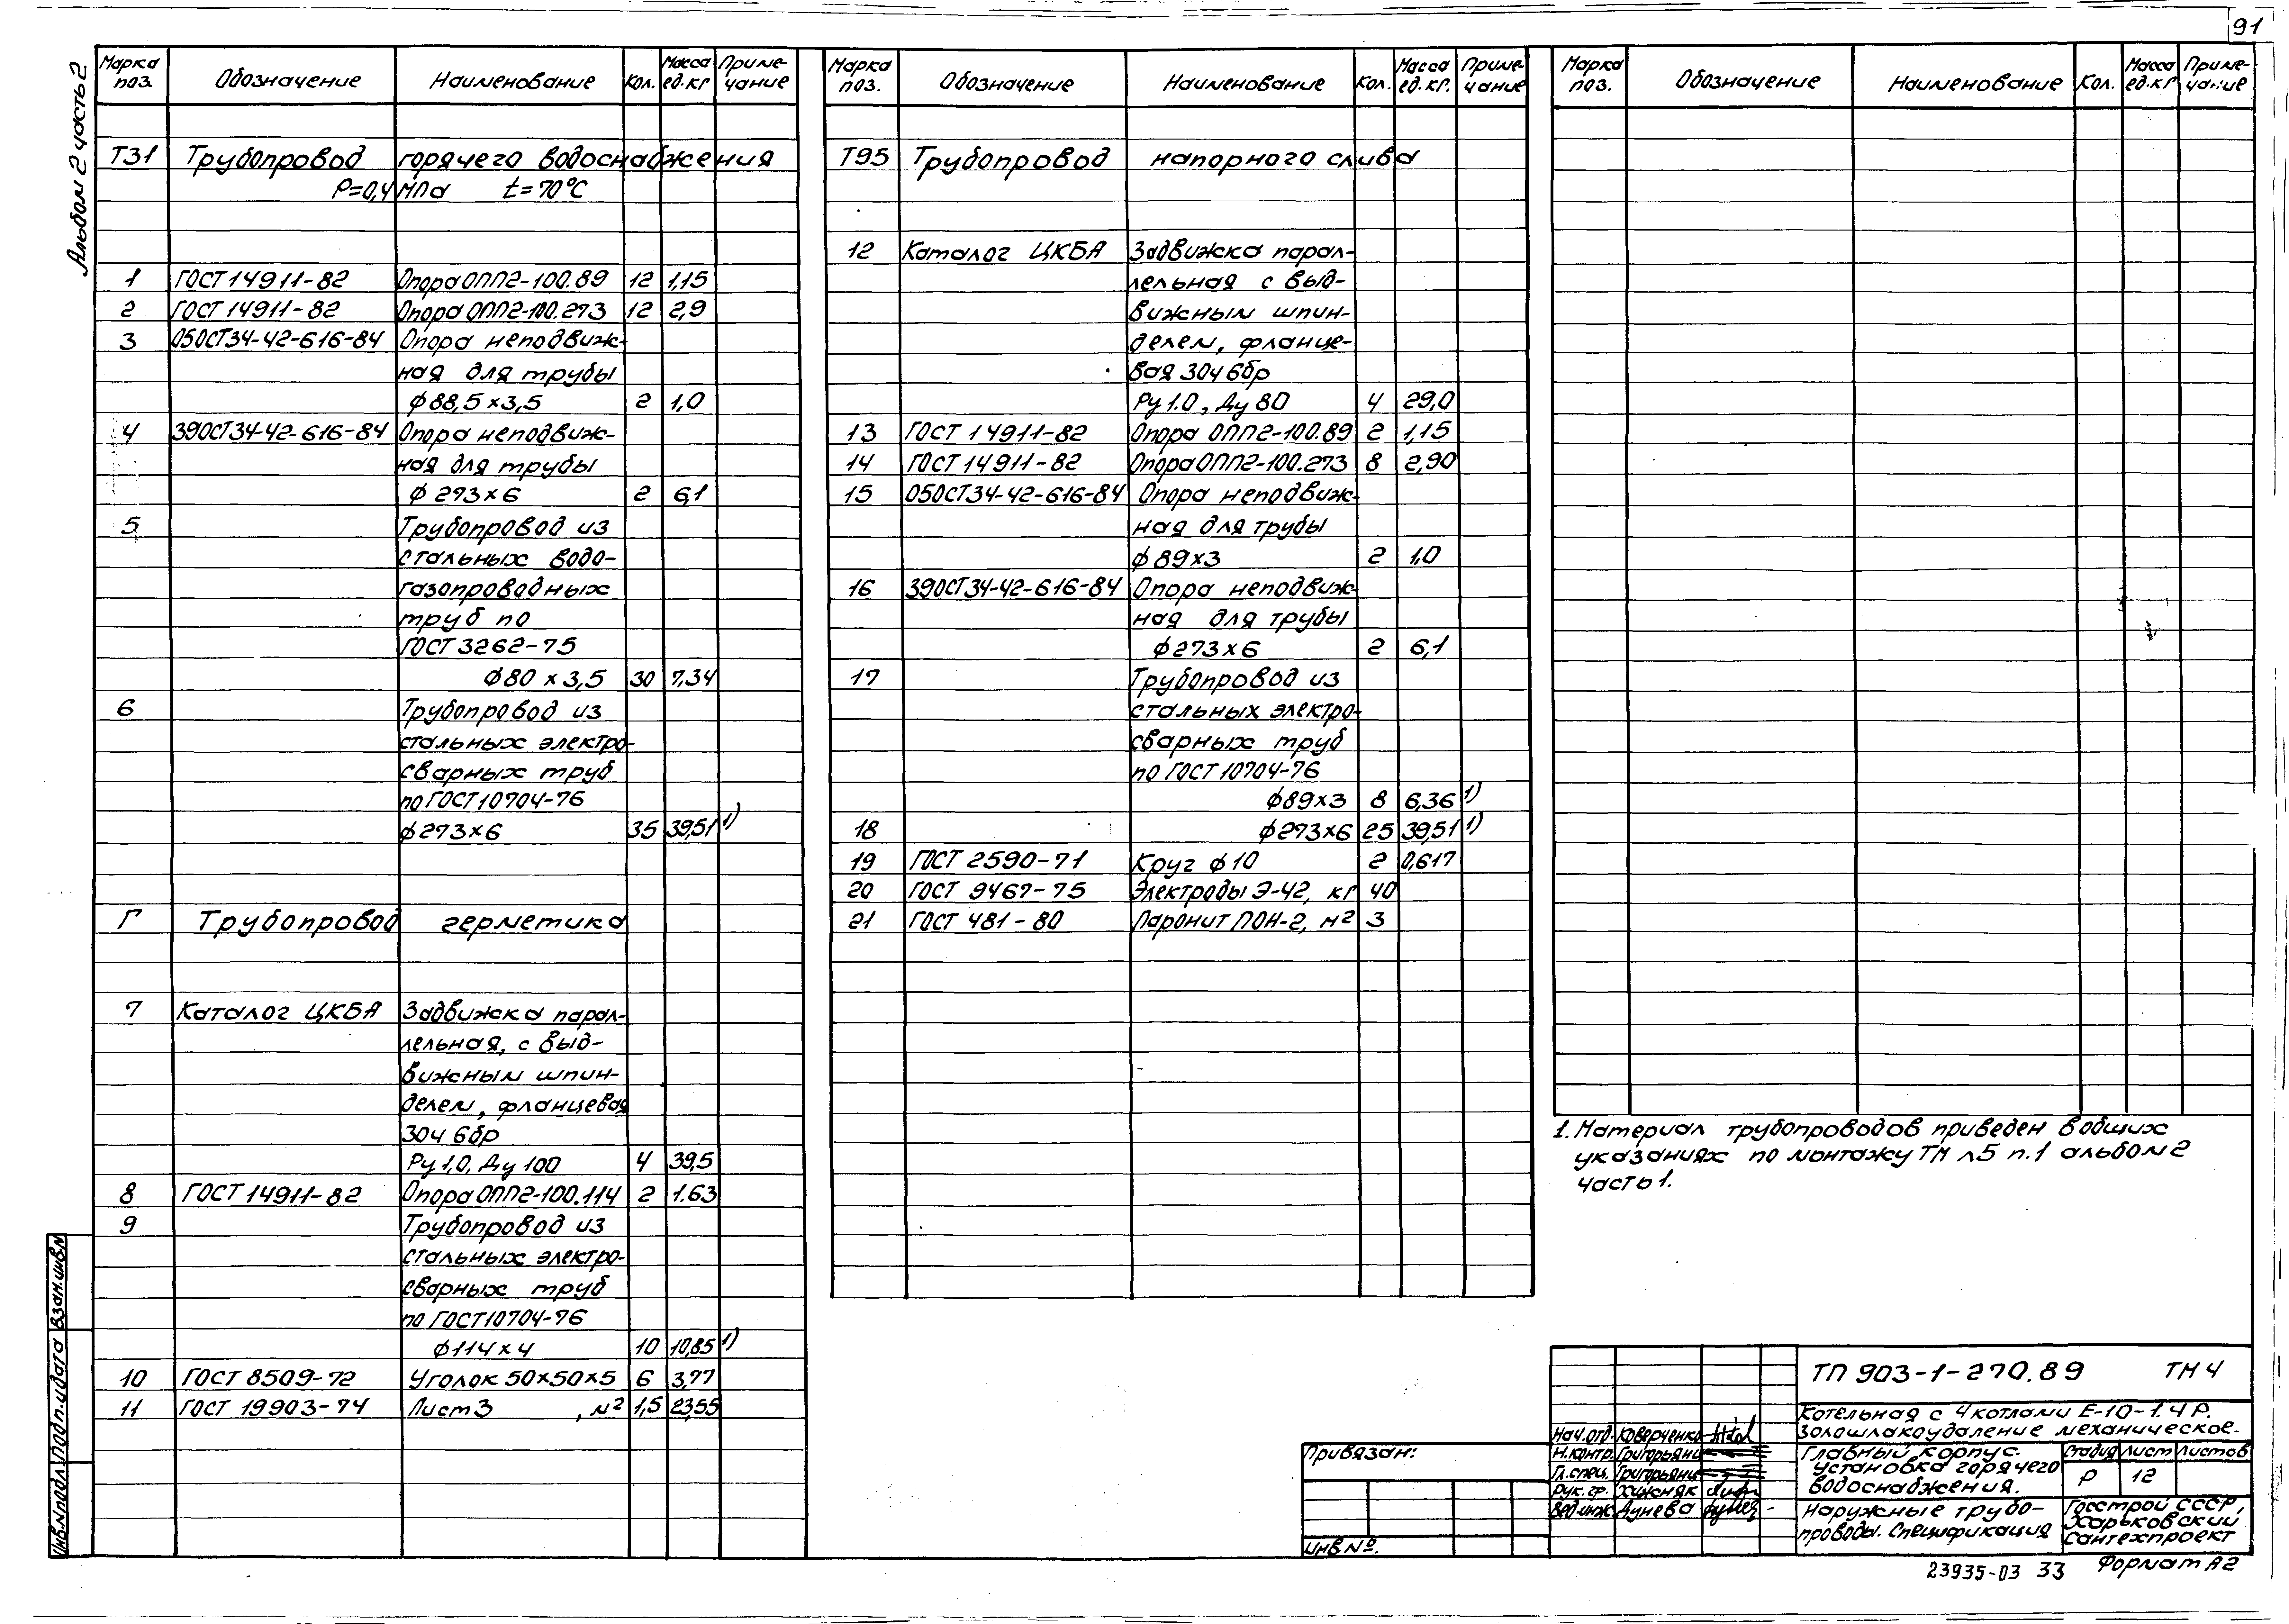 91
Альбом 2 часть 2
Марка поз. Обозначение Наименование Кол. Масса ед.кг Примечание
Т31 Трубопровод горячего водоснабжения
Р=0,4 МПа t=70°С
1 ГОСТ 14911-82 Опора ОПП2-100.89 12 1,15
2 ГОСТ 14911-82 Опора ОПП2-100.273 12 2,9
3 05ОСТ34-42-616-84 Опора неподвиж-
ная для трубы
ф 88,5×3,5 2 1,0
4 39ОСТ34-42-616-84 Опора неподвиж-
ная для трубы
ф 273×6 2 6,1
5 Трубопровод из
стальных водо-
газопроводных
труб по
ГОСТ 3262-75
ф80 × 3,5 30 7,34
6 Трубопровод из
стальных электро-
сварных труб
по ГОСТ 10704-76
ф273×6 35 39,51 1)
Г Трубопровод герметика
7 Каталог ЦКБА Задвижка парал-
лельная, с выд-
вижным шпин-
делем, фланцевая
30ч 6бр
Ру 1,0, Ду 100 4 39,5
8 ГОСТ 14911-82 Опора ОПП2-100.114 2 1.63
9 Трубопровод из
стальных электро-
сварных труб
по ГОСТ 10704-76
ф114×4 10 10,85 1)
10 ГОСТ 8509-72 Уголок 50×50×5 6 3,77
11 ГОСТ 19903-74 Лист 3 , м2 1,5 23,55
Марка поз. Обозначение Наименование Кол. Масса ед.кг. Примечание
Т95 Трубопровод напорного слива
12 Каталог ЦКБА Задвижка парал-
лельная с выд-
вижным шпин-
делем, фланце-
вая 30ч 6бр
Ру 1.0, Ду 80 4 29,0
13 ГОСТ 14911-82 Опора ОПП2-100.89 2 1,15
14 ГОСТ 14911-82 Опора ОПП2-100.273 8 2,90
15 05ОСТ34-42-616-84 Опора неподвиж-
ная для трубы
ф 89×3 2 1,0
16 39ОСТ34-42-616-84 Опора неподвиж-
ная для трубы
ф273×6 2 6,1
17 Трубопровод из
стальных электро-
сварных труб
по ГОСТ 10704-76
ф89×3 8 6,36 1)
18 ф273×6 25 39,51 1)
19 ГОСТ 2590-71 Круг ф10 2 0,617
20 ГОСТ 9467-75 Электроды Э-42, кг 40
21 ГОСТ 481-80 Паронит ПОН-2, м2 3
Марка поз. Обозначение Наименование Кол. Масса ед.кг Примечание
1. Материал трубопроводов приведен в общих
указаниях по монтажу ТМ л5 п.1 альбом 2
часть 1.
Привязан:
Инв.№.
ТП 903-1-270.89 ТМ 4
Котельная с 4 котлами Е-10-1.4 Р.
Золошлакоудаление механическое.
Нач.отд. Коверченко
Н.контр. Григорьянц
Гл.спец. Григорьянц
Рук.гр. Хижняк
Вед.инж. Дунева
Главный корпус.
Установка горячего
водоснабжения.
Стадия Лист Листов
Р 12
Наружные трубо-
проводы. Спецификация
Госстрой СССР,
Харьковский
Сантехпроект
23935-03 33 Формат А2
Инв.№подл. Подп.и дата Взам.инв.№